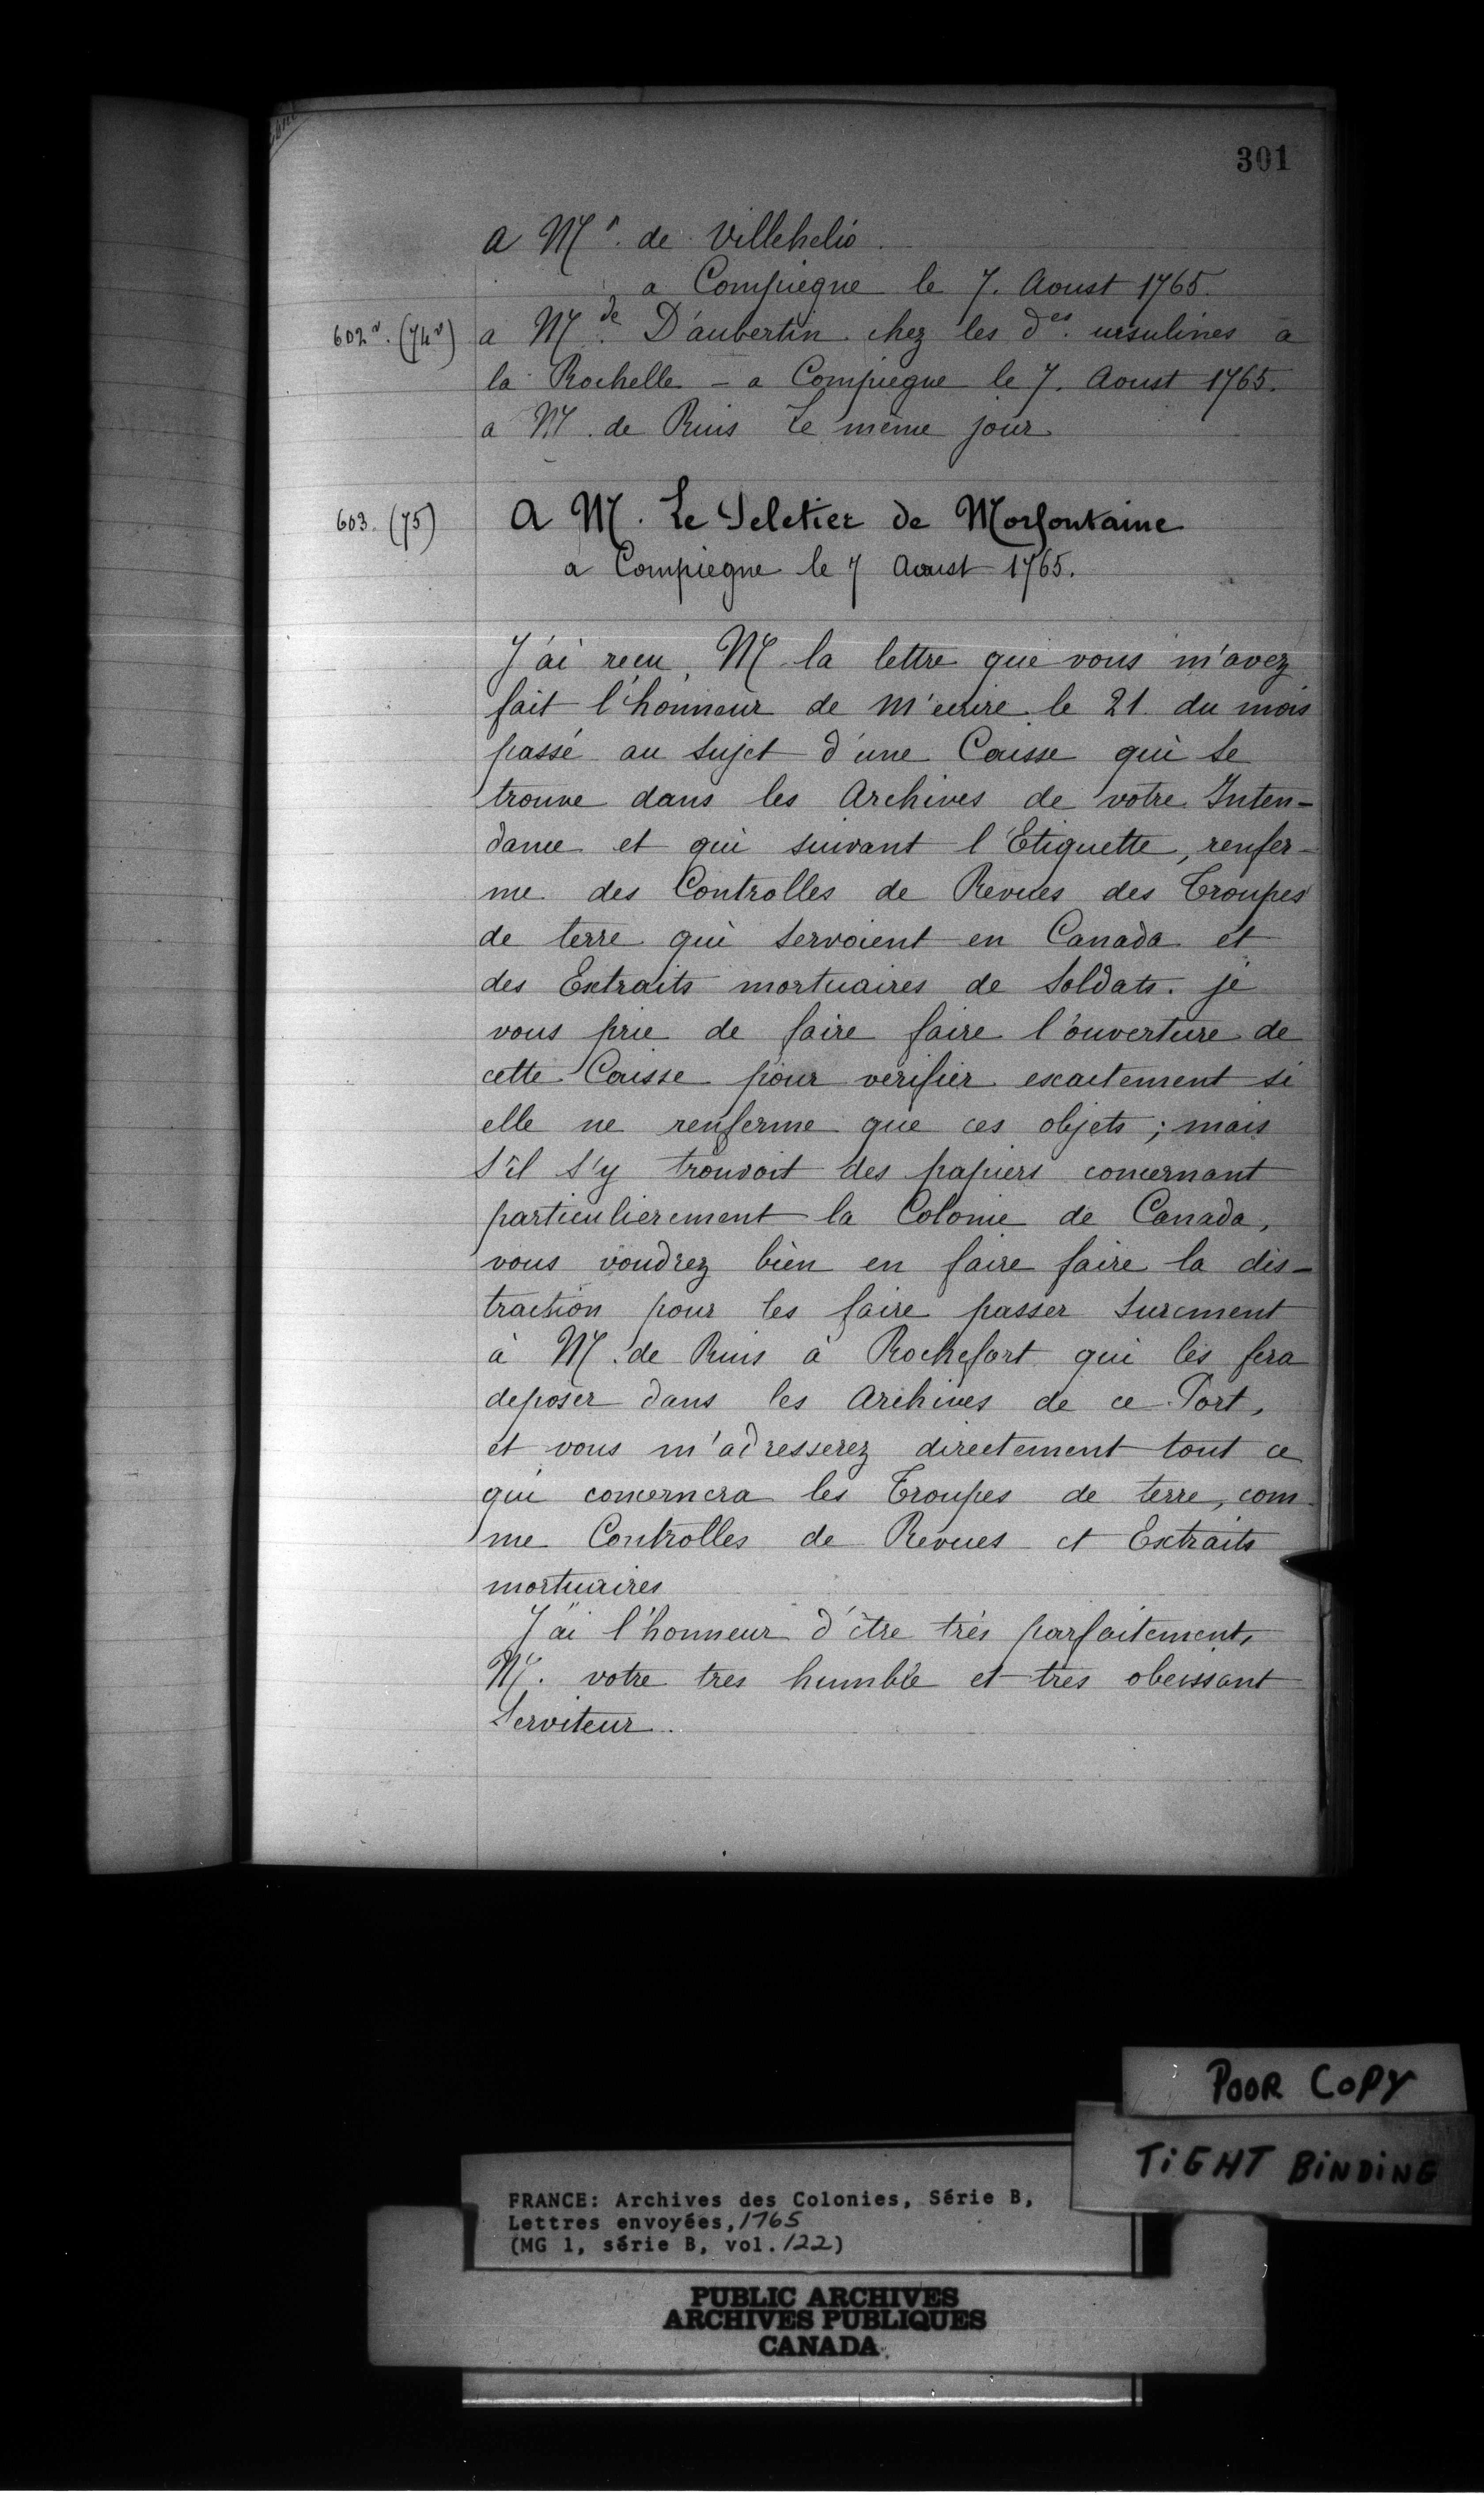 301
a Mr. de Villehelio.
a Compiegne le 7. Aoust 1765.
602v. (74v) a Mde. D'aubertin chez les des. ursulines a
la Rochelle - a Compiegne le 7. Aoust 1765.
a M. de Ruis Le même jour
603. (75) A M. Le Peletier de Morfontaine
a Compiegne le 7 Aoust 1765.
J'ai reçu, M. la lettre que vous m'avez
fait l'honneur de m'ecrire le 21. du mois
passé au sujet d'une Caisse qui se
trouve dans les Archives de votre Inten-
dance et qui suivant l'Etiquette, renfer-
me des Controlles de Revues des Troupes
de terre qui servoient en Canada et
des Extraits mortuaires de Soldats. je
vous prie de faire faire l'ouverture de
cette Caisse pour verifier exactement si
elle ne renferme que ces objets ; mais
s'il s'y trouvoit des papiers concernant
particulierement la Colonie de Canada,
vous voudrez bien en faire faire la dis-
traction pour les faire passer surement
à M. de Ruis à Rochefort qui les fera
deposer dans les Archives de ce Port,
et vous m'adresserez directement tout ce
qui concernera les Troupes de terre, com-
me Controlles de Revues et Extraits
mortuaires
J'ai l'honneur d'être très parfaitement,
M. votre tres humble et tres obeissant
Serviteur.
POOR COPY
TIGHT BINDING
FRANCE: Archives des Colonies, Série B,
Lettres envoyées, 1765
(MG 1, série B, vol. 122)
PUBLIC ARCHIVES
ARCHIVES PUBLIQUES
CANADA